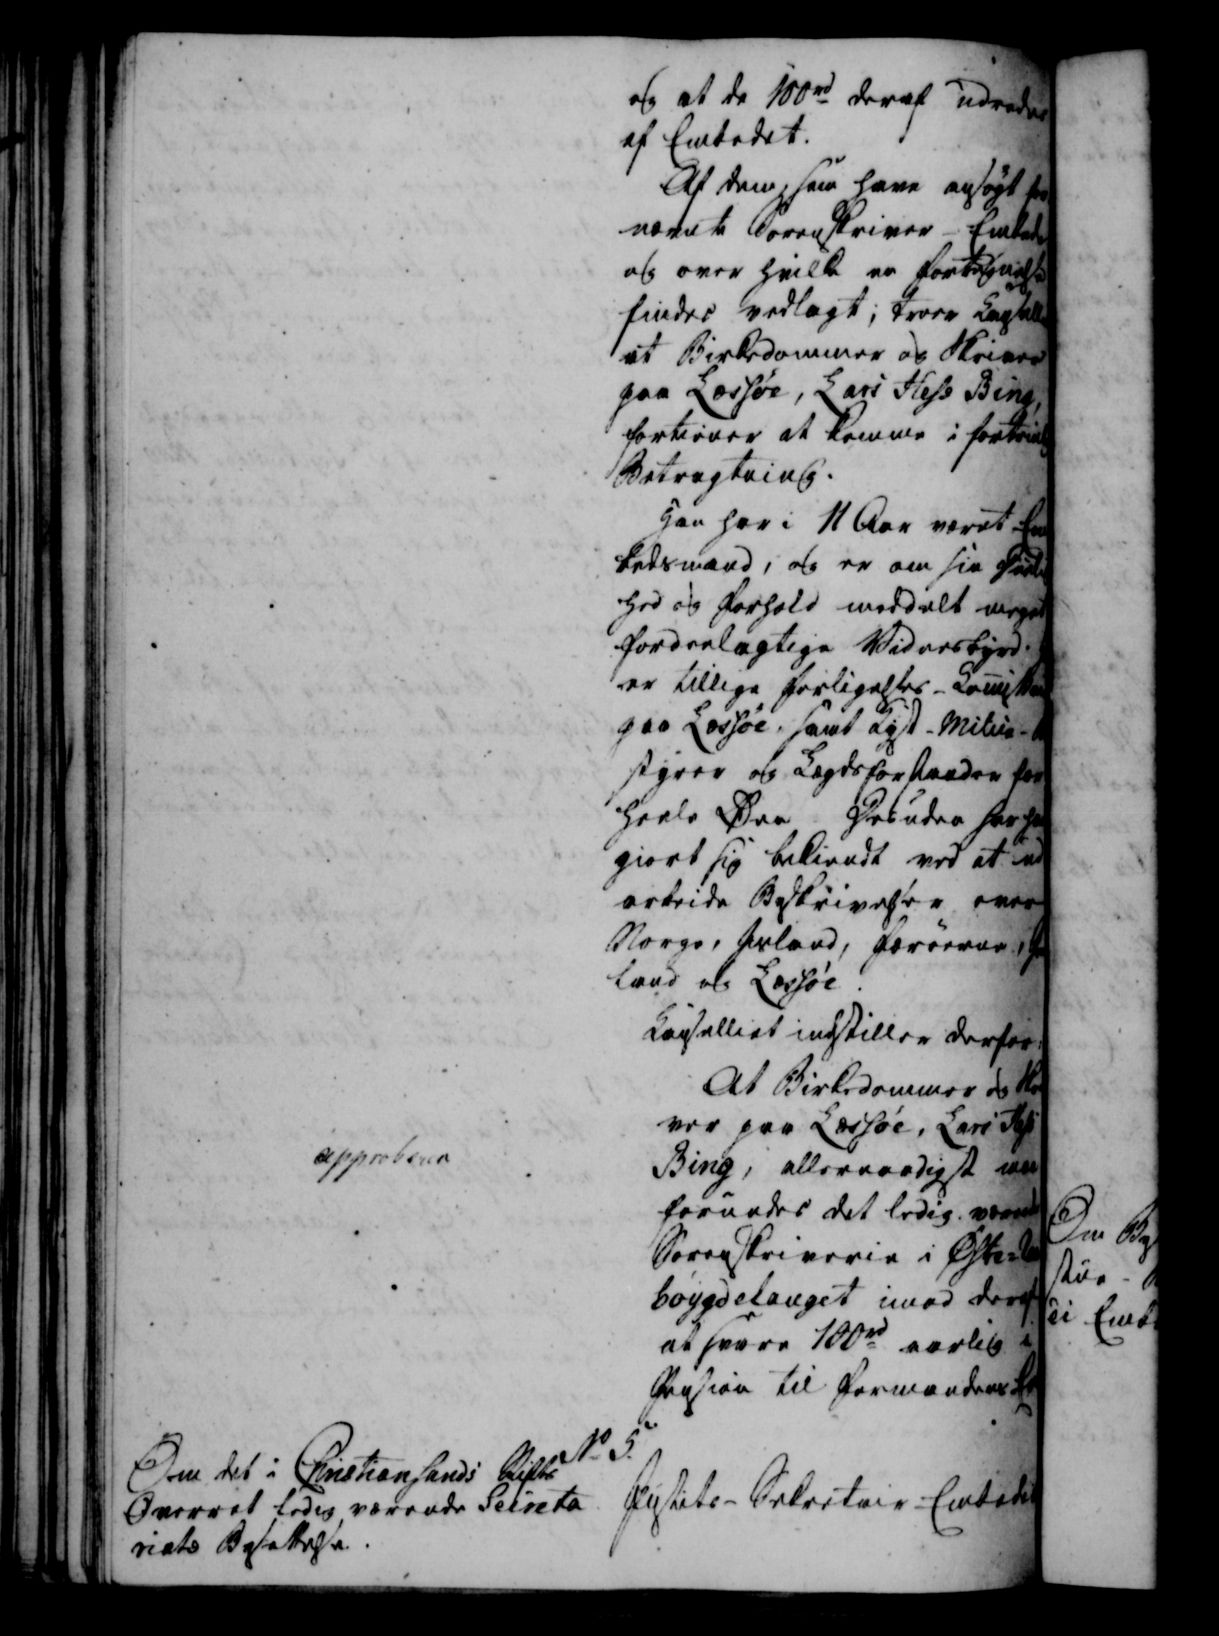 og at de 100 rd deraf udredes
af Embedet.
Af dem, som have ansøgt for
nævnte Sorenskriver-Embede
og over hvilke en Fortegnelse
findes vedlagt; troer Cancellie
at Birkedommer og Skriver
paa Læssøe, Lars Hess Bing,
fortiener at komme i fortrinlig
Betragtning.
Han har i 11 Aar været Em
bedsmand, og er om sin Duelig
hed og Forhold meddelt meget
fordeelagtige Vidnesbyrd.
er tillige Forligelses-Commissair
paa Læssøe, samt Kyst-Milice-
styrer og Lægdsforstander for
heele Øen. Desuden har han
giort sig bekiendt ved at ud
arbeide Beskrivelser over
Norge, Island, Færøerne,
land og Læssøe.
Cancelliet indstiller derfor:
At Birkedommer og Skri
ver paa Læssøe, Lars Hess
Bing, allernaadigst maa
forundes det ledig værende
Sorenskriverie i Øster-
böygdelauget imod deraf
at svare 100 rd aarlig i
Pension til Formandens
approberes
No 5.
Om det i Christiansands Stifts
Overret ledig værende Secreta
riats Besættelse.
Justits-Sekretair-Embedet
Om
stue-
ei Emb